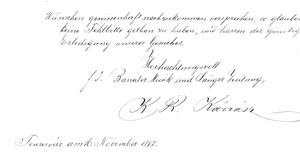 Wünschen gewissenhaft nachzukommen versprechen, so glauben
keine Fehlbitte gethan zu haben, und harren der günstigen
Erledigung unseres Gesuches.
Hochachtungsvoll
f. d. Banater Musik und Sänger Zeitung,
K. R. Karrász
Temesvár am November 1882.